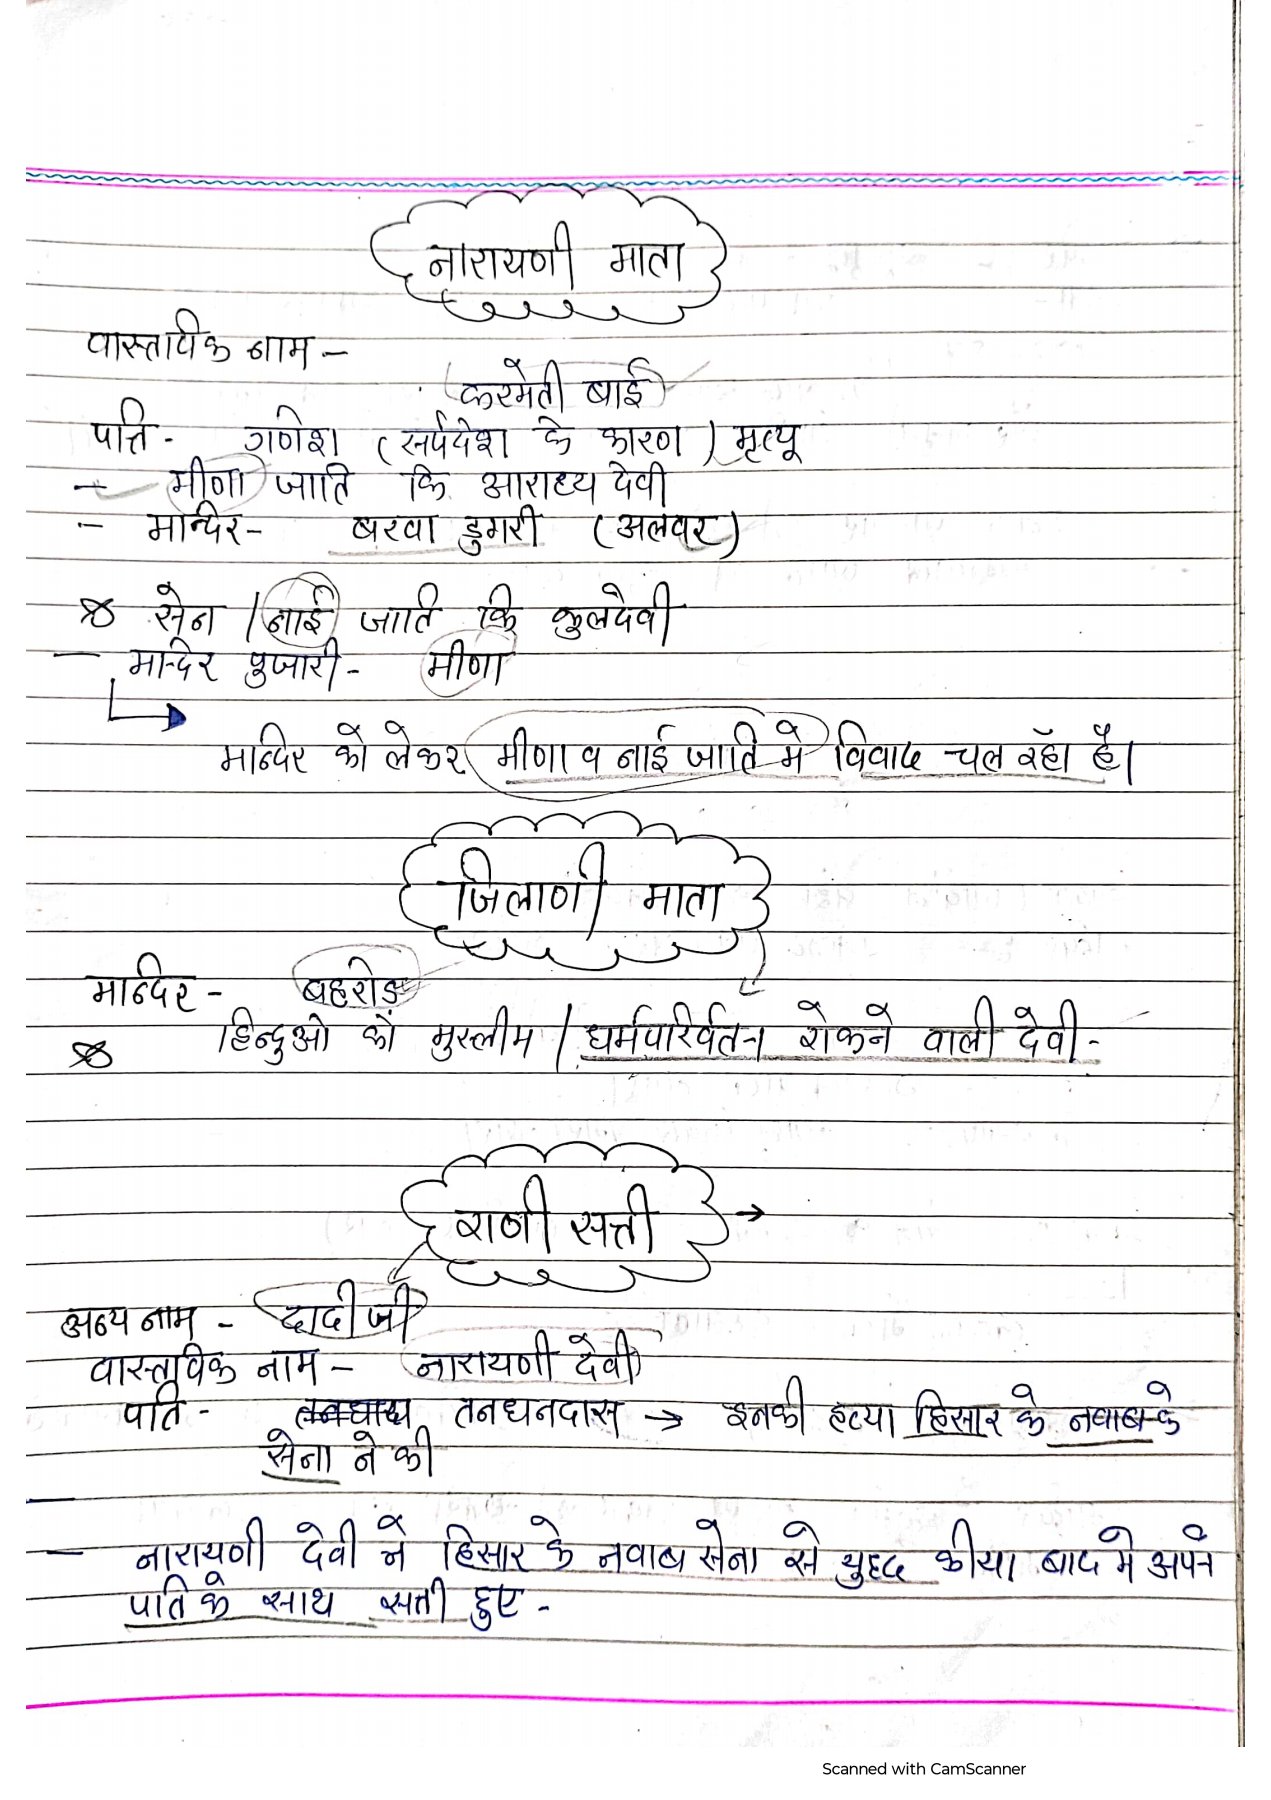 नारायणी माता
वास्तविक नाम -
करमेती बाई
पति - गणेश (सर्पदंश के कारण) मृत्यू
- मीणा जाति कि आराध्य देवी
- मन्दिर - बरवा डुगरी (अलवर)
सेन / नाई जाति कि कुलदेवी
- मन्दिर पुजारी - मीणा
मन्दिर को लेकर मीणा व नाई जाति मे विवाद चल रहा है।
जिलाणी माता
मन्दिर - बहरोड
हिन्दुओ को मुस्लीम / धर्मपरिर्वतन रोकने वाली देवी -
राणी सत्ती →
अन्य नाम - दादी जी
वास्तविक नाम - नारायणी देवी
पति - तनधनदास → इनकी हत्या हिसार के नवाब के
सेना ने की
- नारायणी देवी ने हिसार के नवाब सेना से युद्द कीया बाद मे अपने
पति के साथ सत्ती हुए -
Scanned with CamScanner